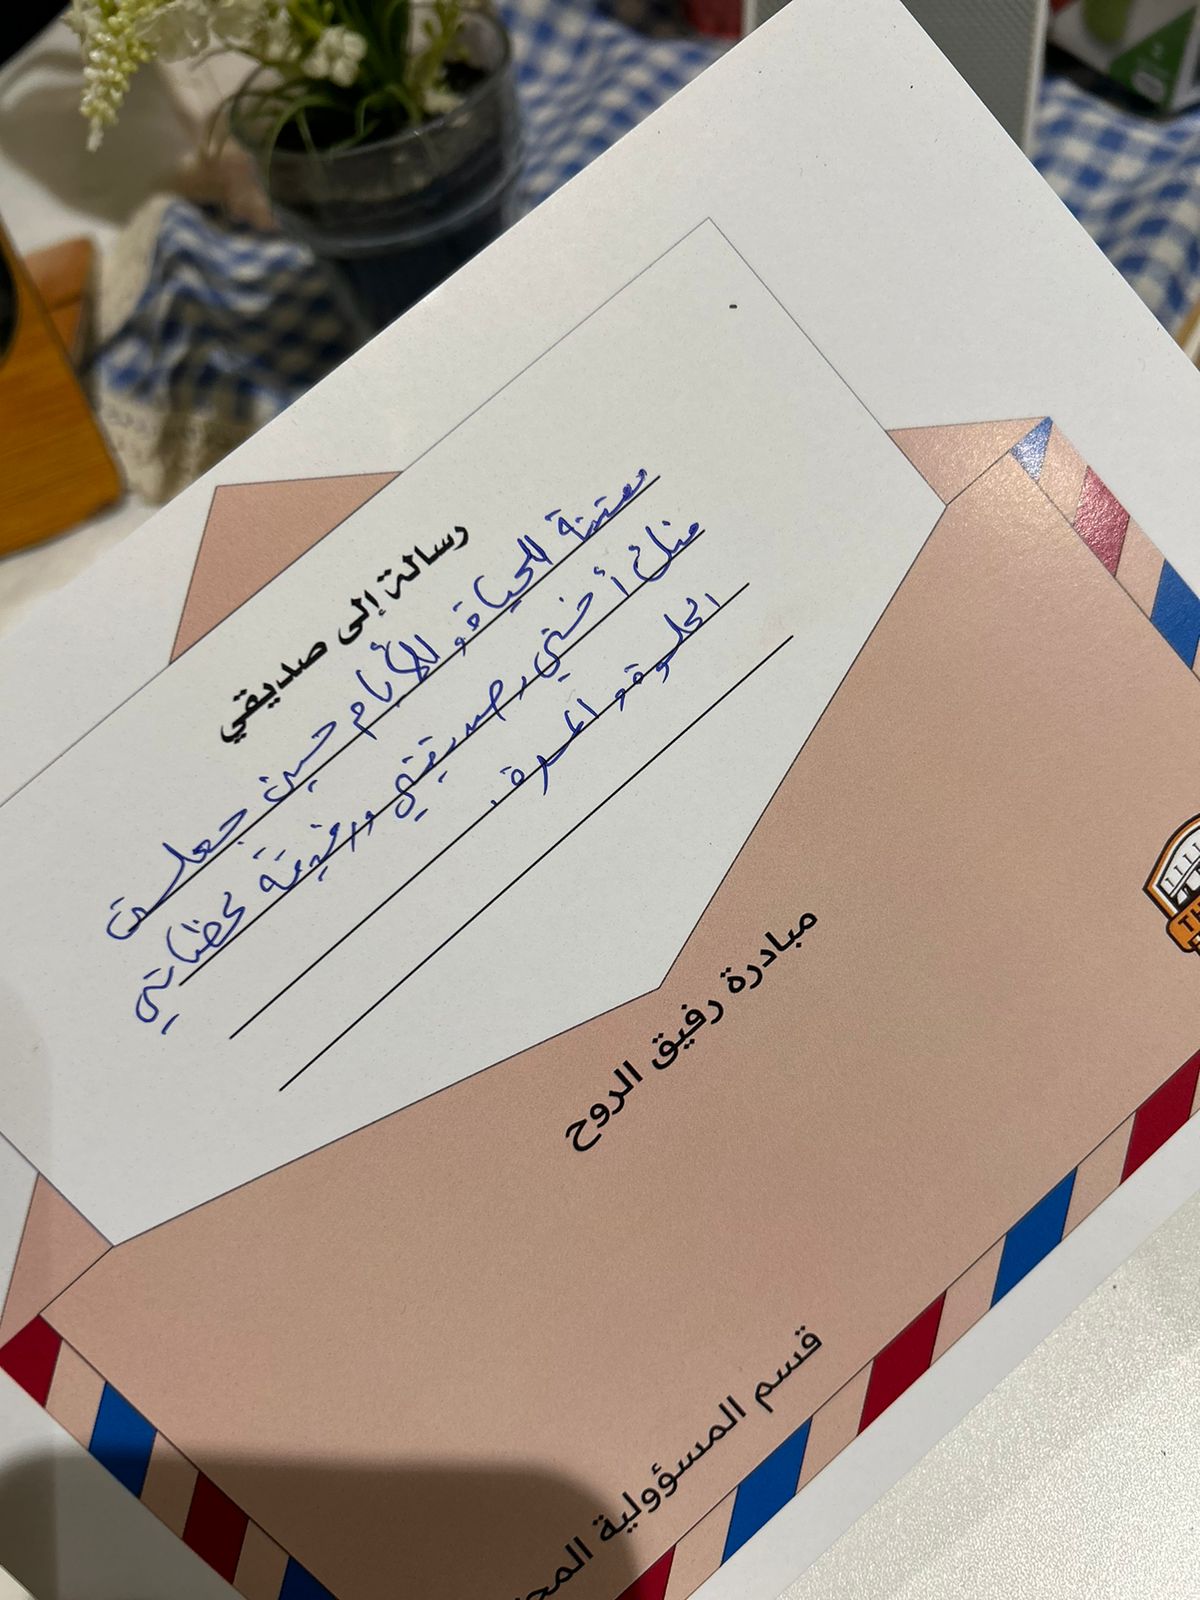 رسالة إلى صديقي
ممتنة للحياة و للأيام حين جعلت
منك أختي و صديقتي ورفيقة لحظاتي
الحلوة و المرة.
مبادرة رفيق الروح
قسم المسؤولية
TH